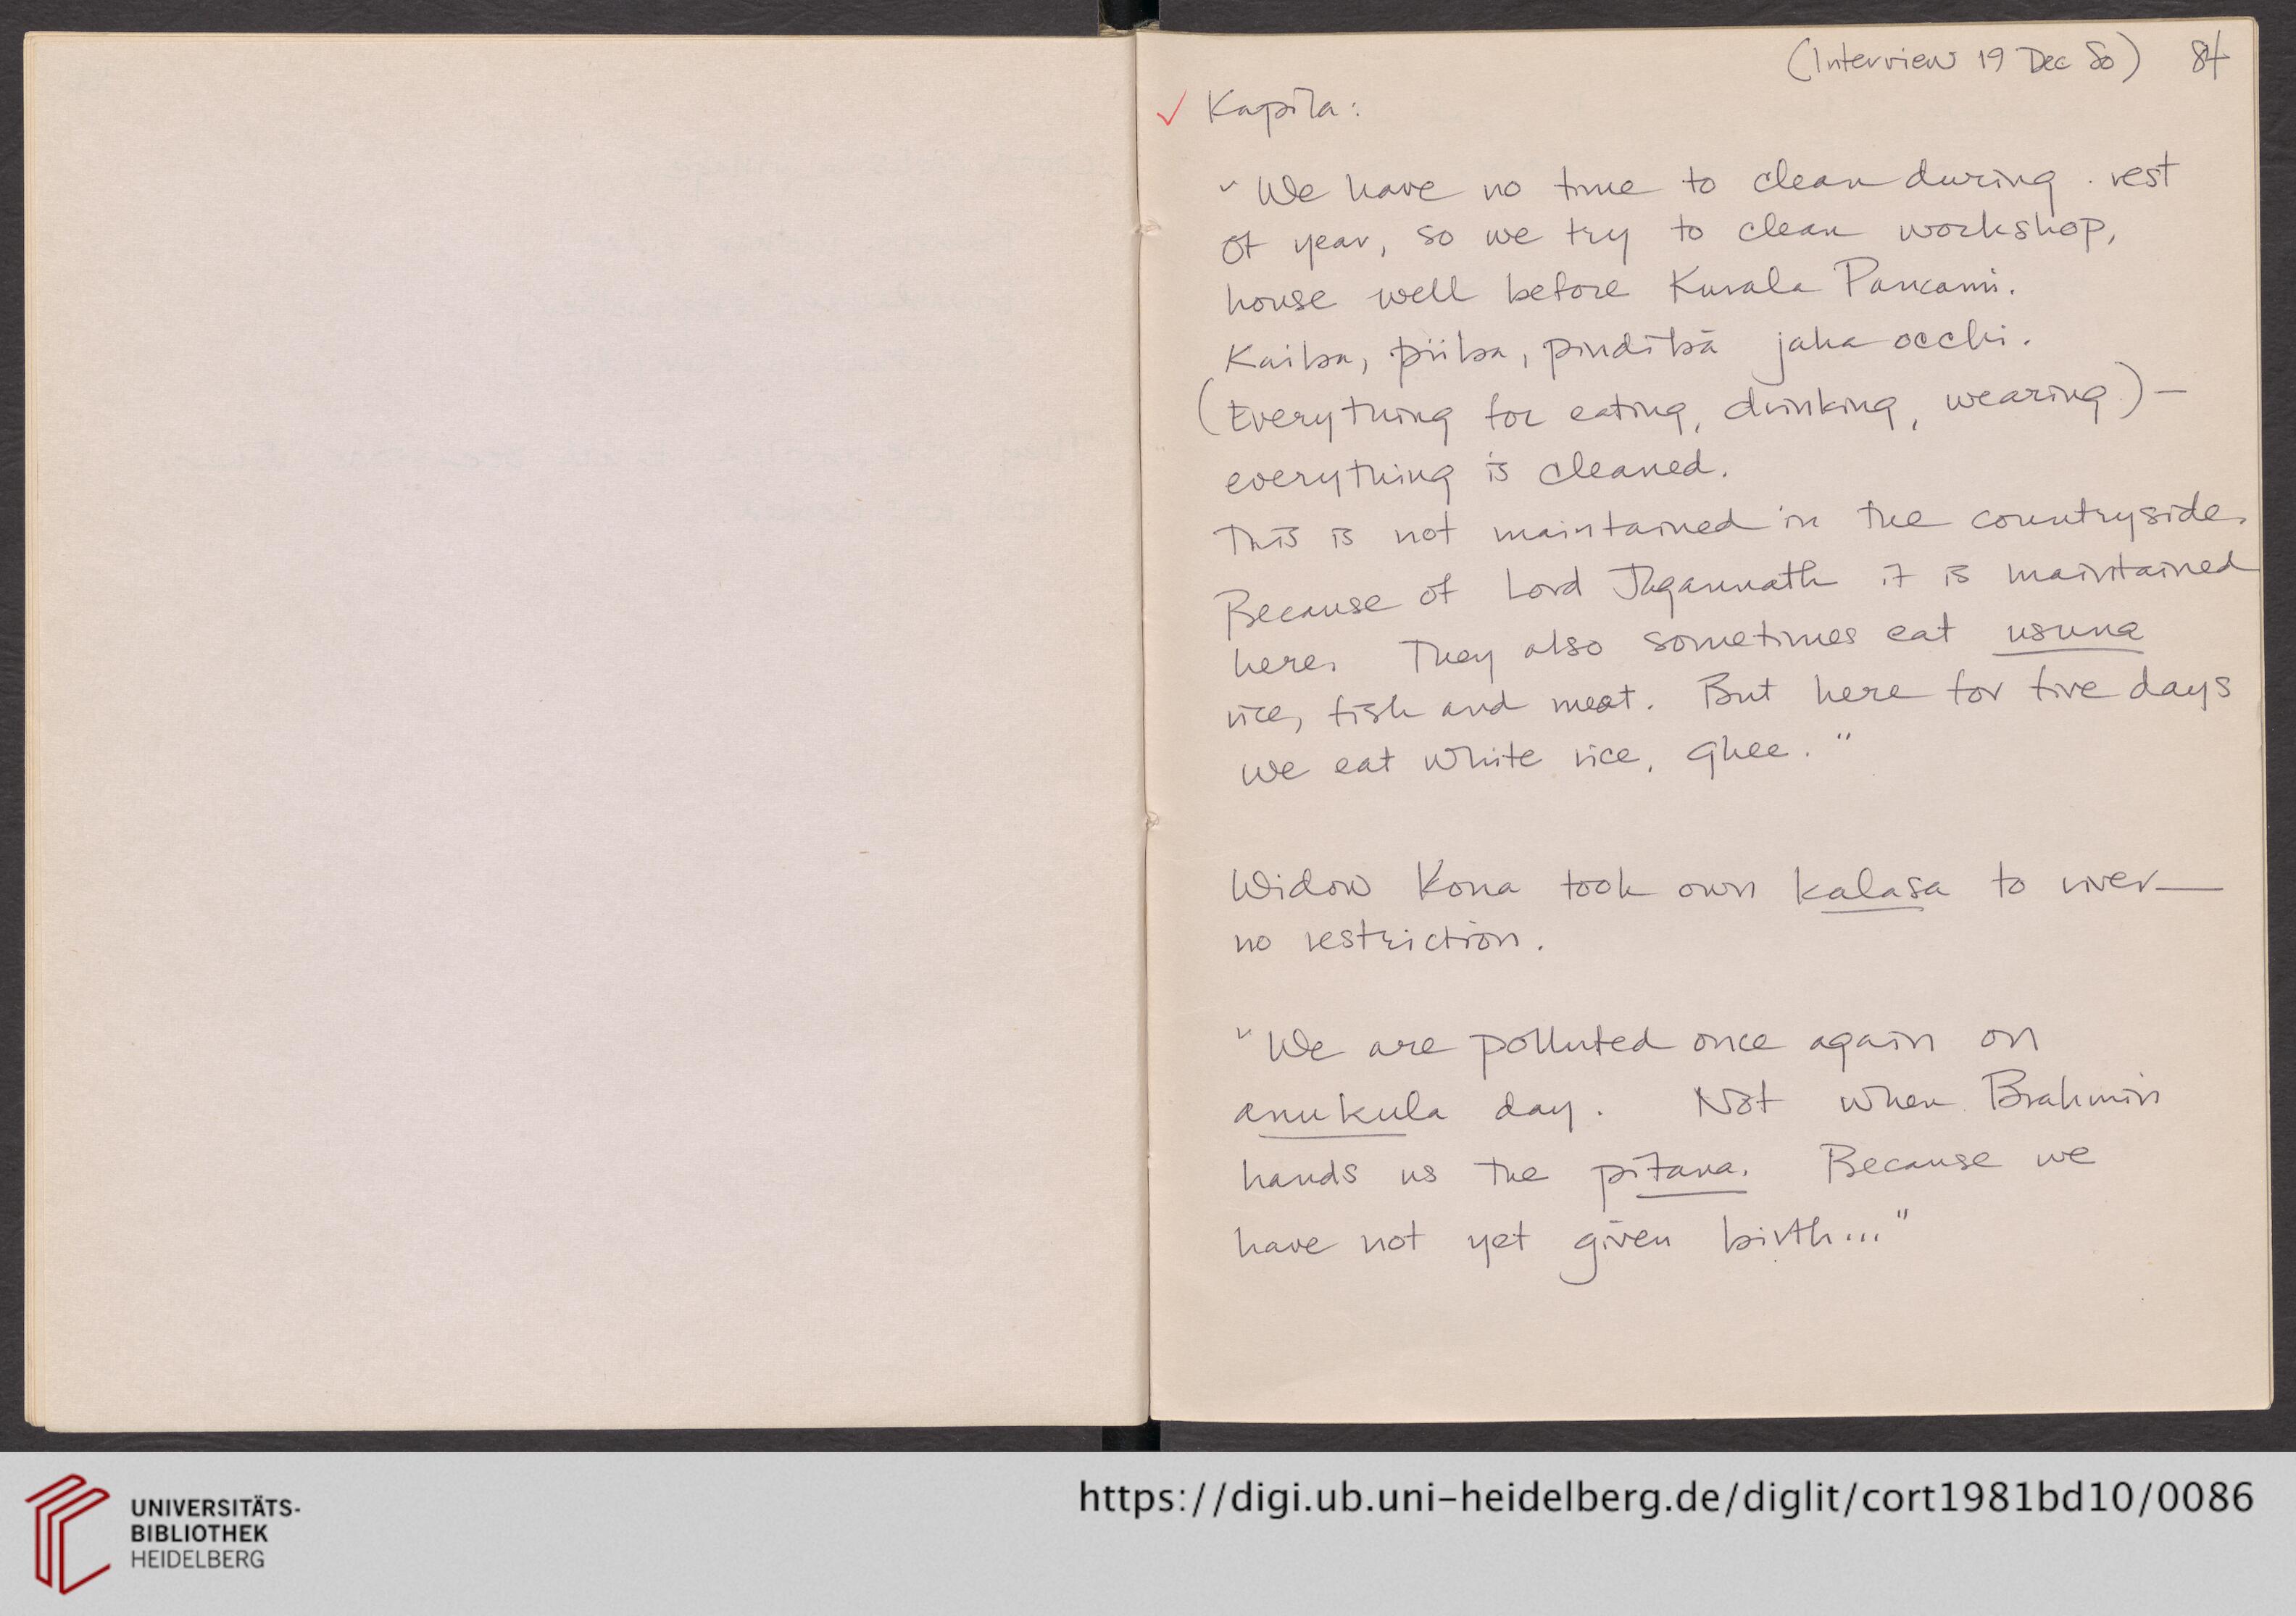 (Interview 19 Dec 80) 84
✓ Kapila:
"We have no time to clean during . rest
of year, so we try to clean workshop,
house well before Kurala Pancami.
Kaiba, piiba, pindibā jaha occhi.
(Everything for eating, drinking, wearing) —
everything is cleaned.
This is not maintained in the countryside.
Because of Lord Jagannath it is maintained
here. They also sometimes eat usuna
rice, fish and meat. But here for five days
we eat white rice, ghee."
Widow Kona took own kalasa to river —
no restriction.
"We are polluted once again on
anukula day. Not when Brahmin
hands us the pitana. Because we
have not yet given birth..."
UNIVERSITÄTS-
BIBLIOTHEK
HEIDELBERG
https://digi.ub.uni-heidelberg.de/diglit/cort1981bd10/0086